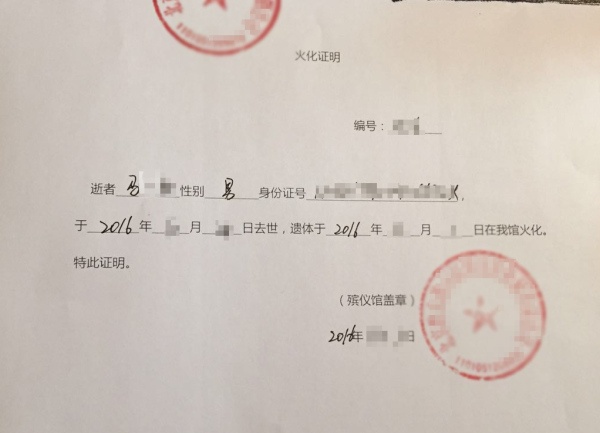 火化证明
编号：
逝者 马 性别 男 身份证号 ，
于 2016 年 月 日去世，遗体于 2016 年 月 日在我馆火化。
特此证明。
（殡仪馆盖章）
2016年 日